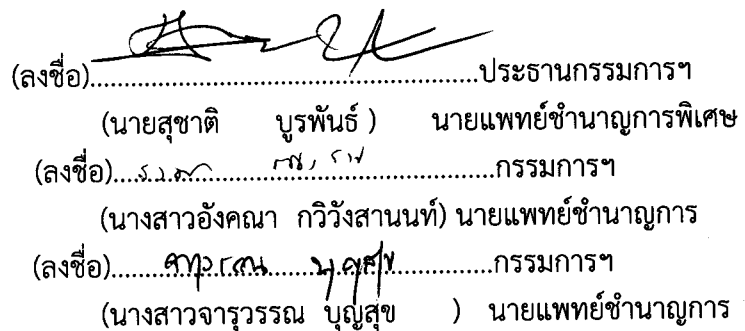 (ลงชื่อ)......................................................ประธานกรรมการฯ
(นายสุชาติ บูรพันธ์ ) นายแพทย์ชำนาญการพิเศษ
(ลงชื่อ)......................................................กรรมการฯ
(นางสาวอังคณา กวิวังสานนท์) นายแพทย์ชำนาญการ
(ลงชื่อ)......................................................กรรมการฯ
(นางสาวจารุวรรณ บุญสุข ) นายแพทย์ชำนาญการ